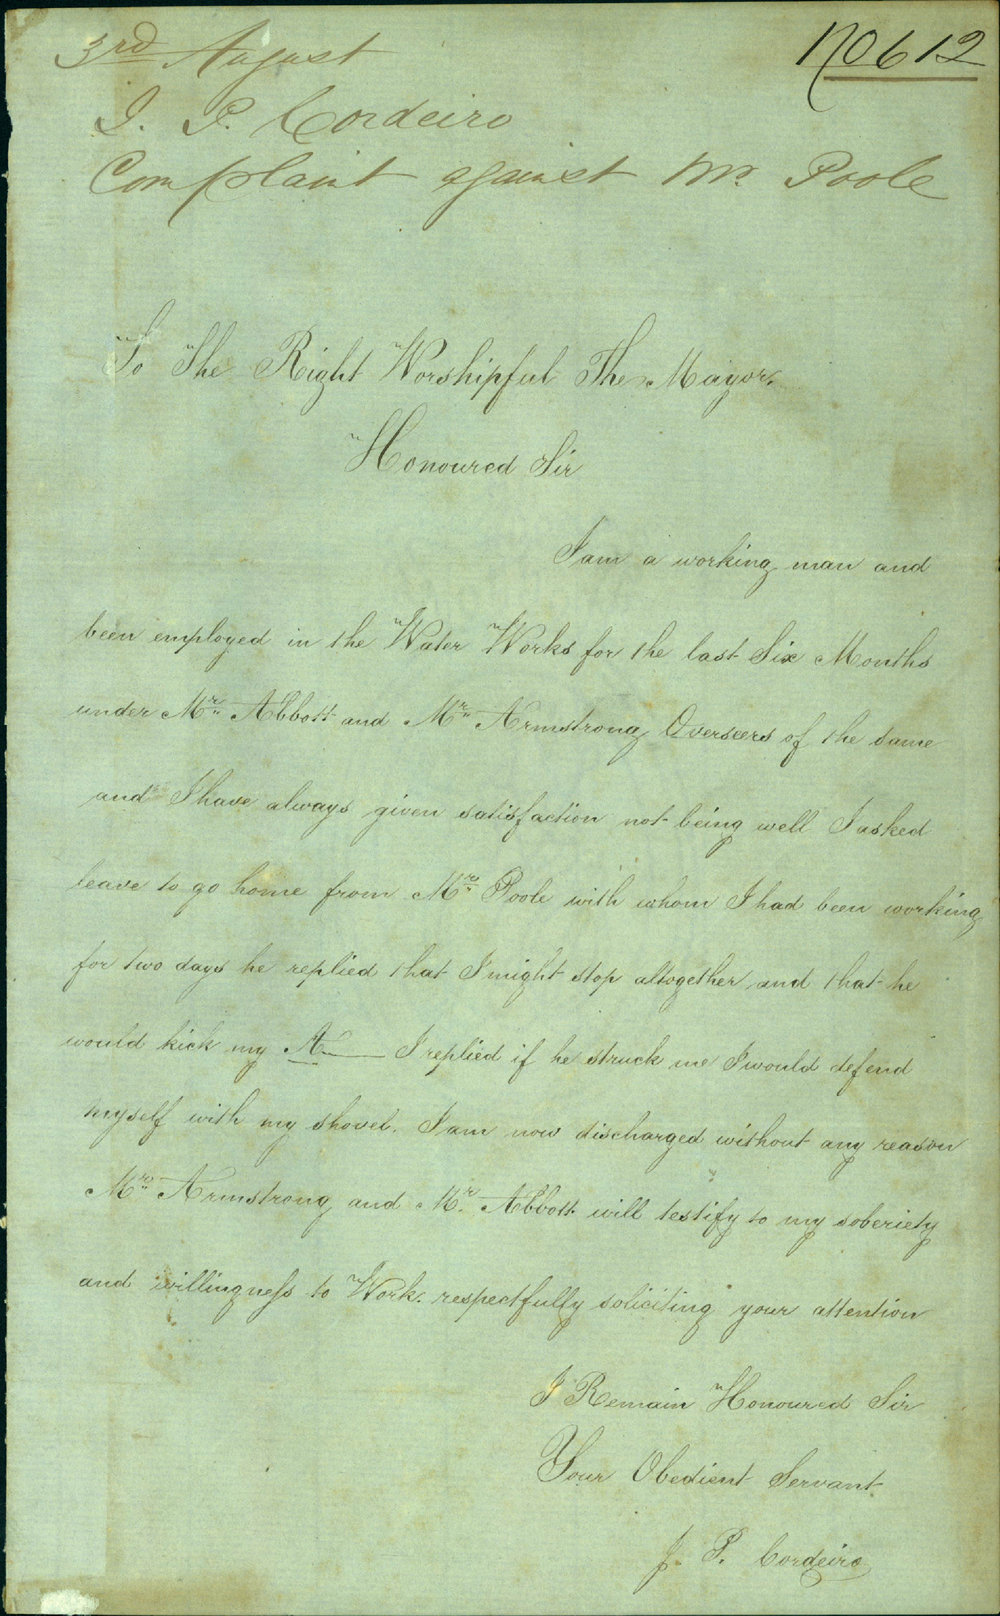 No 612
3rd August
J. P. Cordeiro
Complaint against Mr. Poole
To The Right Worshipful The Mayor.
Honoured Sir
I am a working man and
been employed in the Water Works for the last Six Months
under Mr. Abbott and Mr. Armstrong Overseers of the same
and I have always given satisfaction not being well I asked
leave to go home from Mr. Poole with whom I had been working
for two days he replied that I might stop altogether and that he
would kick my A—— I replied if he struck me I would defend
myself with my shovel. I am now discharged without any reason
Mr. Armstrong and Mr. Abbott will testify to my soberiety
and willingness to Work. respectfully soliciting your attention
I Remain Honoured Sir
Your Obedient Servant
J. P. Cordeiro